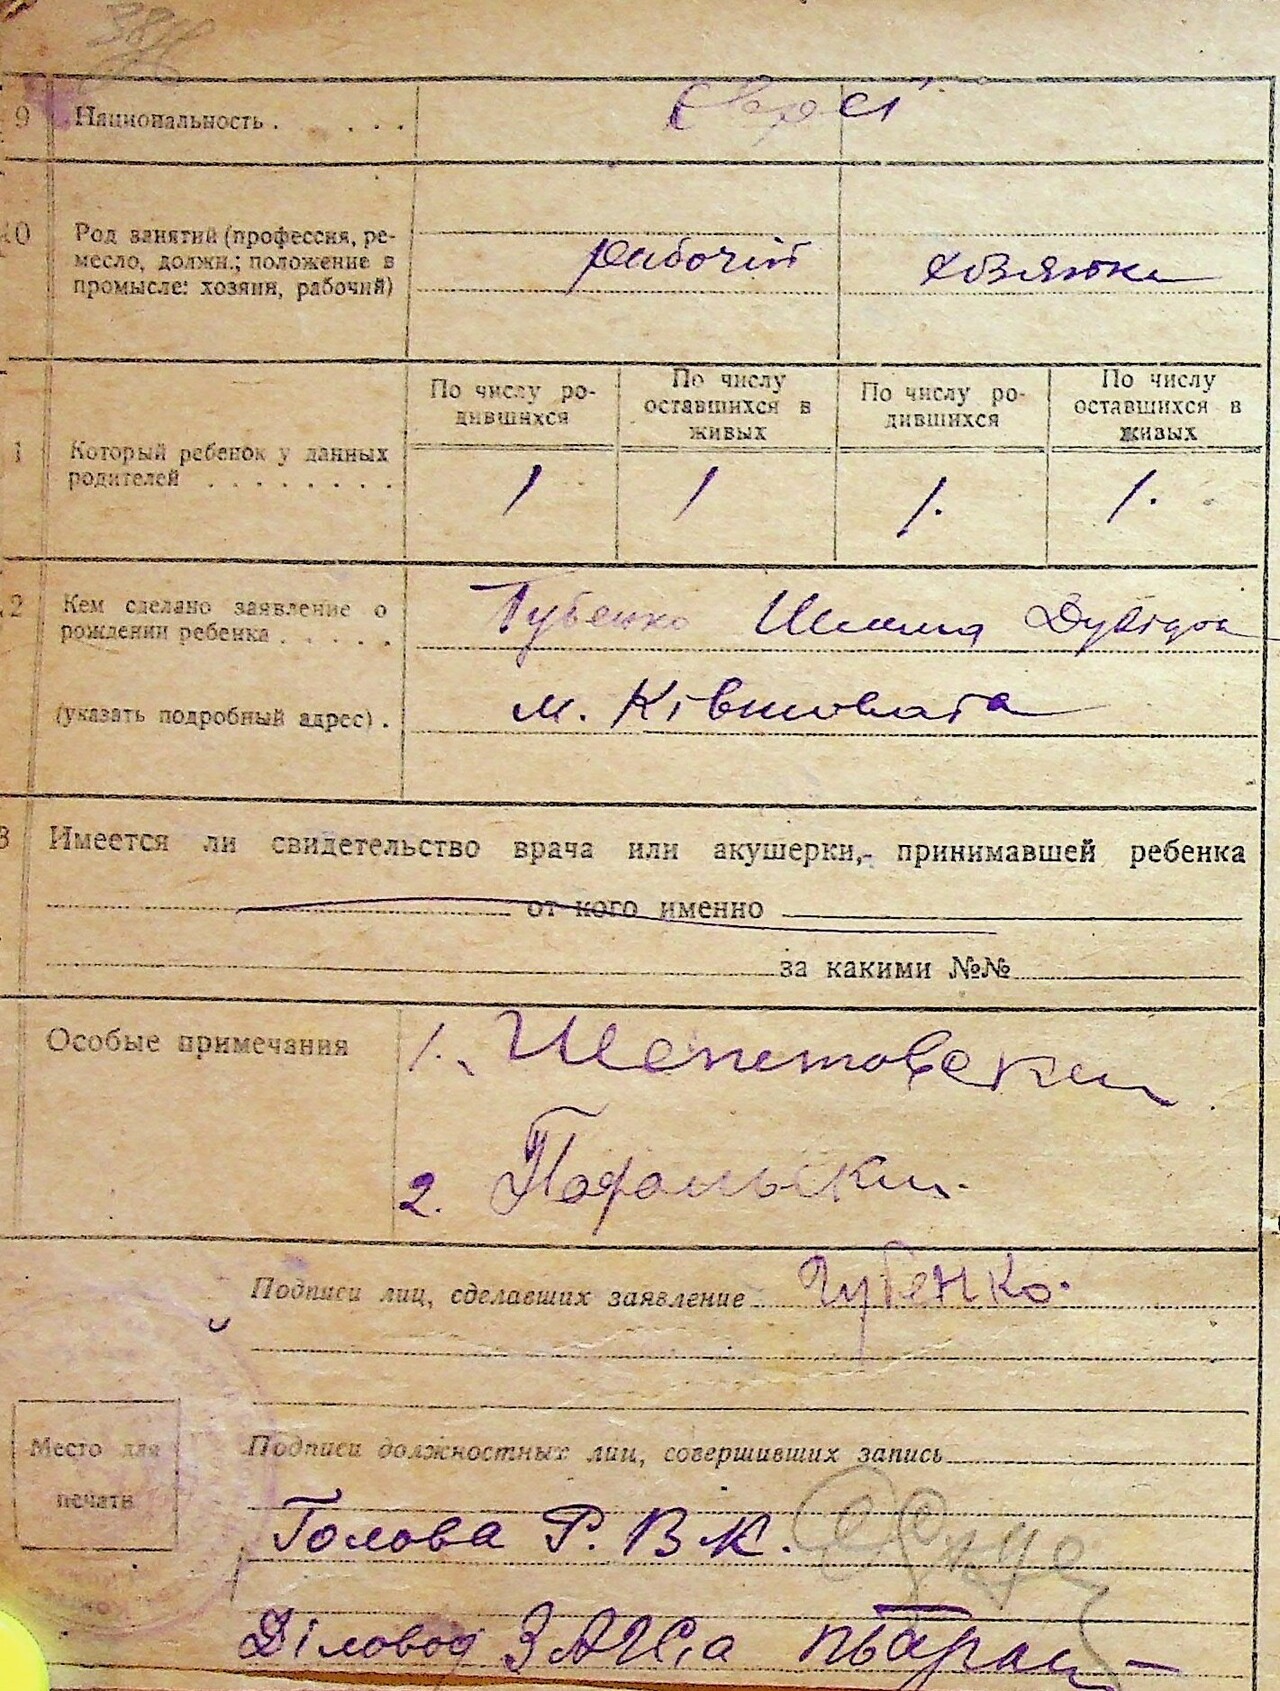 9 Национальность . . . . Євреї
10 Род занятий (профессия, ре-
месло, должн.; положение в
промысле: хозяин, рабочий)
рабочій хозяйка
1 Который ребенок у данных
родителей . . . . . . . .
По числу ро-
дившихся
По числу
оставшихся в
живых
По числу ро-
дившихся
По числу
оставшихся в
живых
1 1 1. 1.
2 Кем сделано заявление о
рождении ребенка . . . . .
Губенко Шлома
(указать подробный адрес) .
м. Ківшовата
3 Имеется ли свидетельство врача или акушерки, принимавшей ребенка
от кого именно
за какими №№
Особые примечания
1. Шепетовский
2. Подольский
Подписи лиц, сделавших заявление Губенко.
Место для
печати
Подписи должностных лиц, совершивших запись
Голова Р. В К.
Діловод ЗАГСа